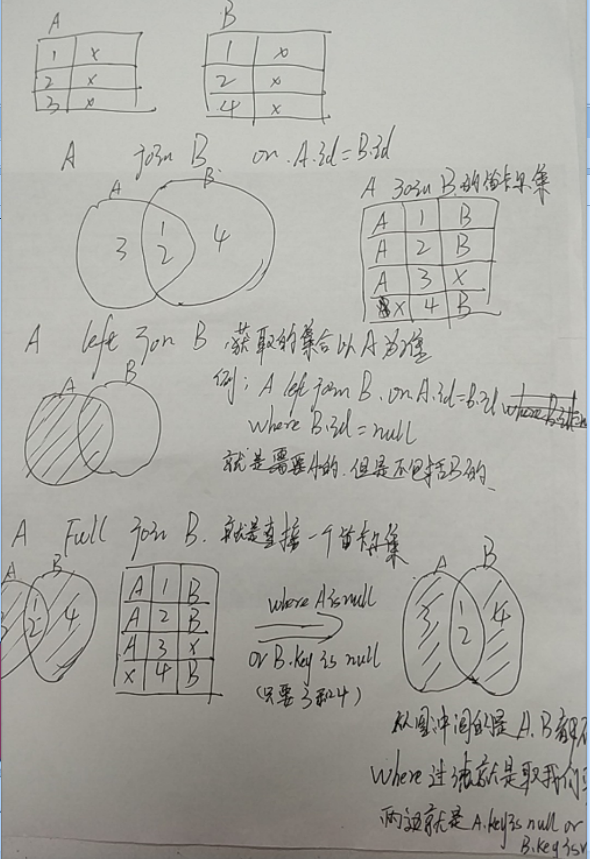 A B
1 x 1 x
2 x 2 x
3 x 4 x
A join B on A.id=B.id
A B
3 1 2 4
A join B的笛卡尔集
A 1 B
A 2 B
A 3 X
X 4 B
A left join B 获取的集合以A为准
A B
例: A left join B on A.id=B.id
where B.id=null
就是需要A的,但是不包括B的
A Full join B. 就是直接一个笛卡尔集
A B
3 1 2 4
A 1 B
A 2 B
A 3 X
X 4 B
where A is null
or B.key is null
(只要3和4)
A B
3 1 2 4
从图中间的是A.B都
where过滤就是取我们
两边就是A.key is null or
B.key is